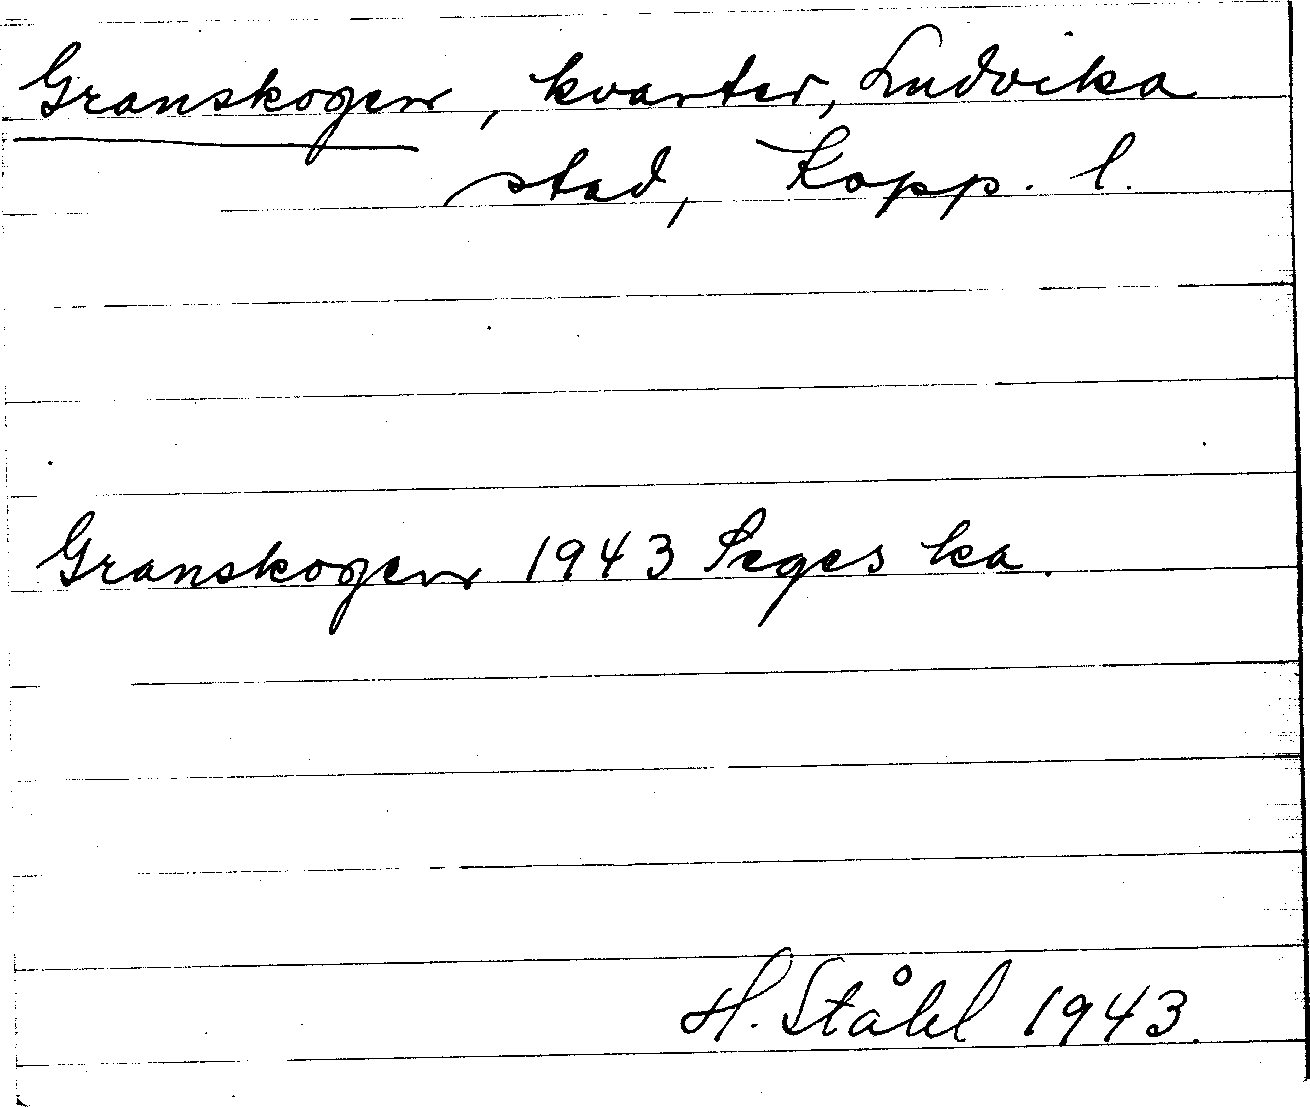 Granskogen, kvarter, Ludvika
stad, Kopp. l.
Granskogen 1943 Seges ka.
H. Ståhl 1943.